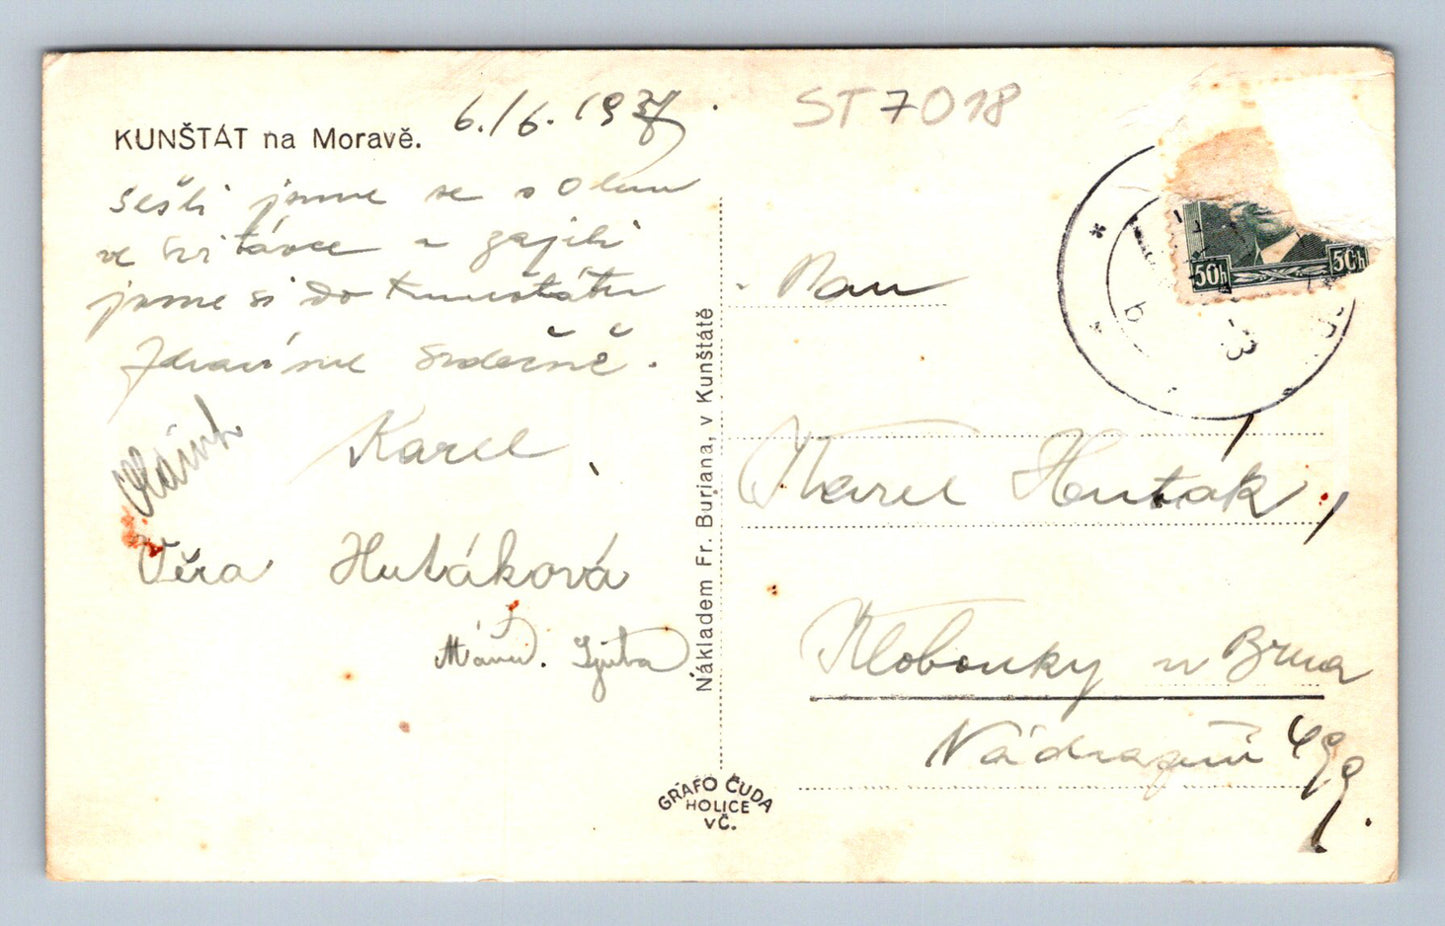 KUNŠTÁT na Moravě.
6./6. 1937.
ST7018
Sešli jsme se s
ve Svitávce a zajeli
jsme si do Kunštátu
Zdravíme srdečně.
Karel
Věra Hutáková
Nákladem Fr. Buriana, v Kunštátě
GRAFO ČUDA
HOLICE
VČ.
50h 50h
b
Pan
Karel Huták,
Klobouky u Brna
Nádražní 499